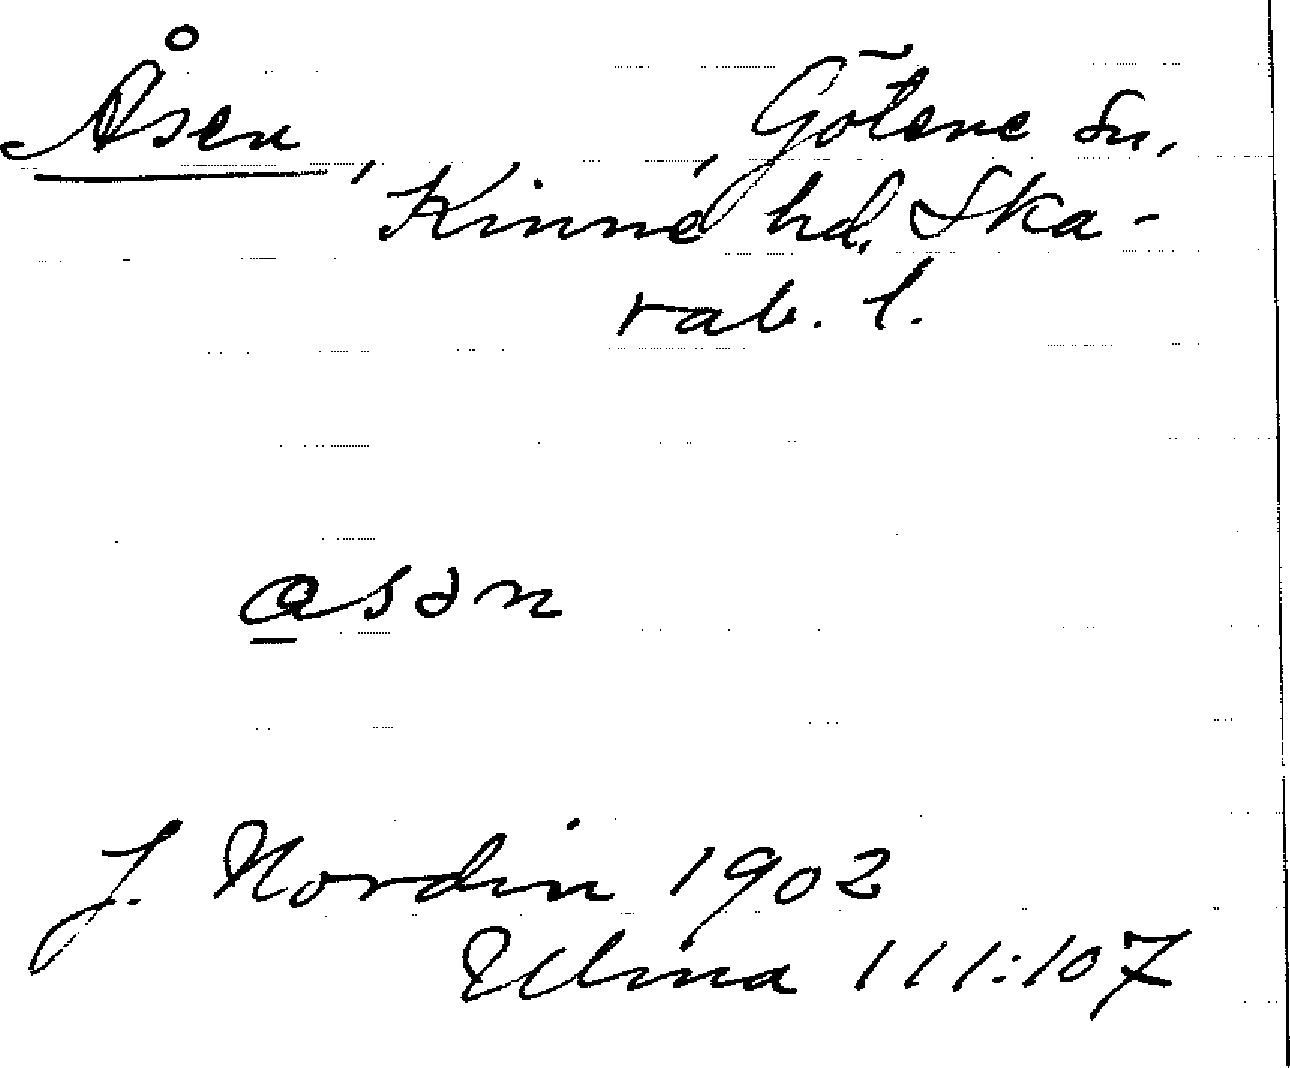 Åsen, Götene sn,
Kinne hd, Ska-
rab. l.
åsən
J. Nordin 1902
Ulma 111:107